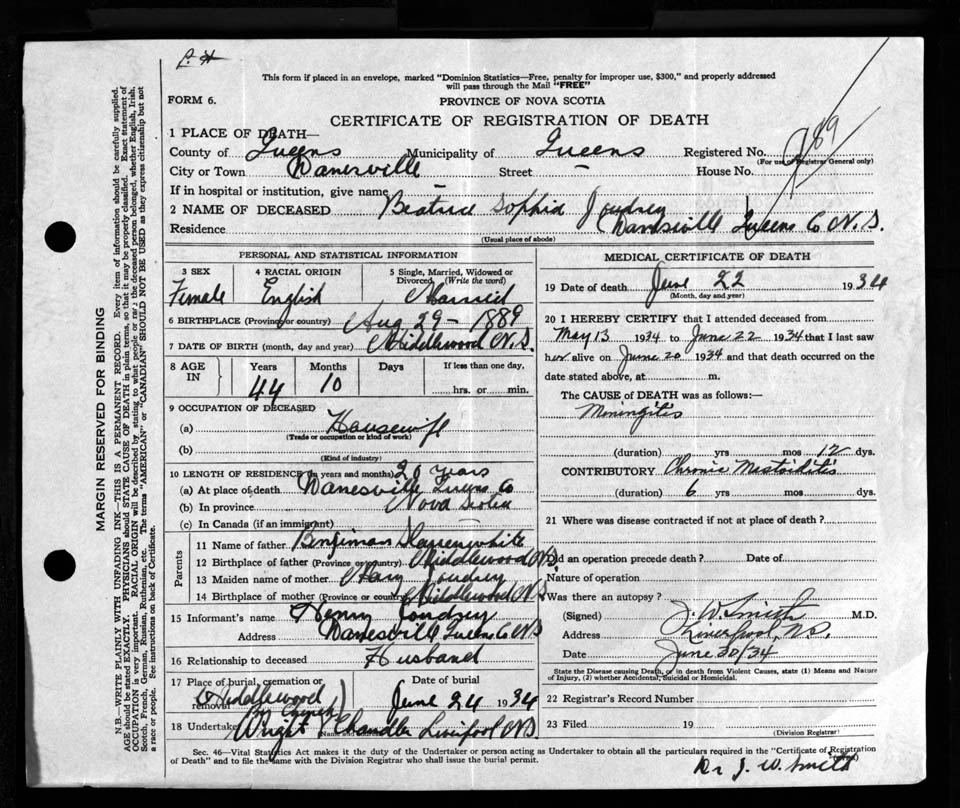 P. H
This form if placed in an envelope, marked "Dominion Statistics—Free, penalty for improper use, $300," and properly addressed
will pass through the Mail "FREE"
FORM 6.
PROVINCE OF NOVA SCOTIA
CERTIFICATE OF REGISTRATION OF DEATH
1 PLACE OF DEATH—
County of Queens Municipality of Queens Registered No. 989
(For use of Registrar General only)
City or Town Danesville Street — House No.
If in hospital or institution, give name —
2 NAME OF DECEASED Beatrice Sophia Joudrey
Residence Danesville Queens Co N.S.
(Usual place of abode)
PERSONAL AND STATISTICAL INFORMATION
3 SEX 4 RACIAL ORIGIN 5 Single, Married, Widowed or
Divorced (Write the word)
Female English Married
6 BIRTHPLACE (Province or country) Aug 29 - 1889
7 DATE OF BIRTH (month, day and year) Middlewood N.S.
8 AGE IN Years Months Days If less than one day,
44 10 hrs. or min.
9 OCCUPATION OF DECEASED
(a) Housewife
(Trade or occupation or kind of work)
(b)
(Kind of industry)
10 LENGTH OF RESIDENCE (in years and months) 20 years
(a) At place of death Danesville Queens Co
(b) In province Nova Scotia
(c) In Canada (if an immigrant) —
Parents
11 Name of father Benjiman
12 Birthplace of father (Province or country) Middlewood N.S.
13 Maiden name of mother Mary Joudrey
14 Birthplace of mother (Province or country) Middlewood N.S
15 Informant's name Henry Joudrey
Address Danesville Queens Co N.S
16 Relationship to deceased Husband
17 Place of burial, cremation or removal Date of burial
(Middlewood Church) June 24 1934
18 Undertaker Wright & Chandler Liverpool N.S.
MEDICAL CERTIFICATE OF DEATH
19 Date of death June 22 1934
(Month, day and year)
20 I HEREBY CERTIFY that I attended deceased from
May 13 1934 to June 22 1934 that I last saw
her alive on June 20 1934 and that death occurred on the
date stated above, at m.
The CAUSE of DEATH was as follows:—
Meningitis
(duration) yrs mos 12 dys.
CONTRIBUTORY Chronic Mastoiditis
(duration) 6 yrs mos dys.
21 Where was disease contracted if not at place of death?
Did an operation precede death? Date of
Nature of operation
Was there an autopsy?
(Signed) J. W. Smith M.D.
Address Liverpool, N.S.
Date June 30/34
State the Disease causing Death, or in death from Violent Causes, state (1) Means and Nature
of Injury, (2) whether Accidental, Suicidal or Homicidal.
22 Registrar's Record Number
23 Filed 19
(Division Registrar)
Sec. 46—Vital Statistics Act makes it the duty of the Undertaker or person acting as Undertaker to obtain all the particulars required in the "Certificate of Registration
of Death" and to file the same with the Division Registrar who shall issue the burial permit.
Dr J. W. Smith
MARGIN RESERVED FOR BINDING
N.B.—WRITE PLAINLY WITH UNFADING INK—THIS IS A PERMANENT RECORD. Every item of information should be carefully supplied.
AGE should be stated EXACTLY. PHYSICIANS should STATE CAUSE OF DEATH in plain terms, so that it may be properly classified. Exact statement of
OCCUPATION is very important. RACIAL ORIGIN will be described by stating to what people or race the deceased person belonged, whether English, Irish,
Scotch, French, German, Russian, Ruthenian, etc. The terms "AMERICAN" or "CANADIAN" SHOULD NOT BE USED as they express citizenship but not
a race or people. See instructions on back of Certificate.